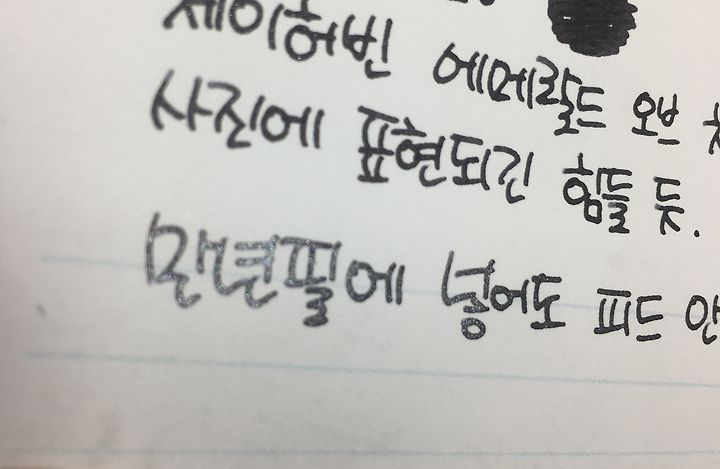 제이허빈 에메랄드 오브
사진에 표현되긴 힘들 듯.
만년필에 넣어도 피드